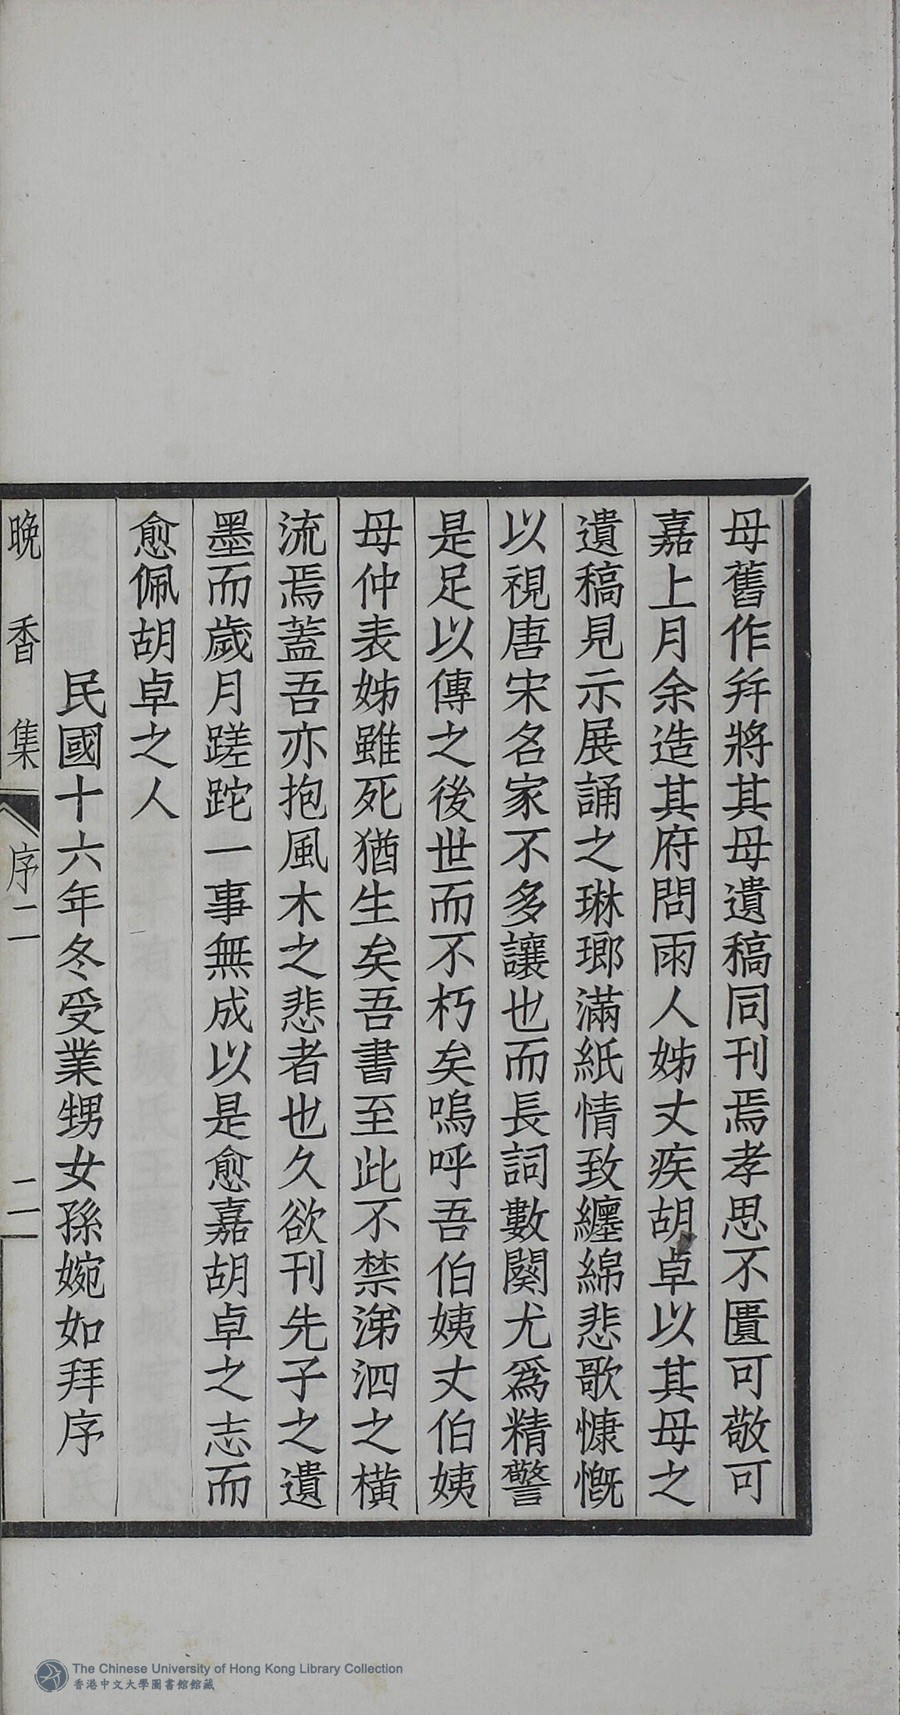 母舊作并將其母遺稿同刊焉孝思不匱可敬可
嘉上月余造其府問雨人姊丈疾胡卓以其母之
遺稿見示展誦之琳瑯滿紙情致纏綿悲歌慷慨
以視唐宋名家不多讓也而長詞數闋尤爲精警
是足以傳之後世而不朽矣嗚呼吾伯姨丈伯姨
母仲表姊雖死猶生矣吾書至此不禁涕泗之橫
流焉蓋吾亦抱風木之悲者也久欲刊先子之遺
墨而歲月蹉跎一事無成以是愈嘉胡卓之志而
愈佩胡卓之人
民國十六年冬受業甥女孫婉如拜序
晚香集 序二 二
The Chinese University of Hong Kong Library Collection
香港中文大學圖書館館藏